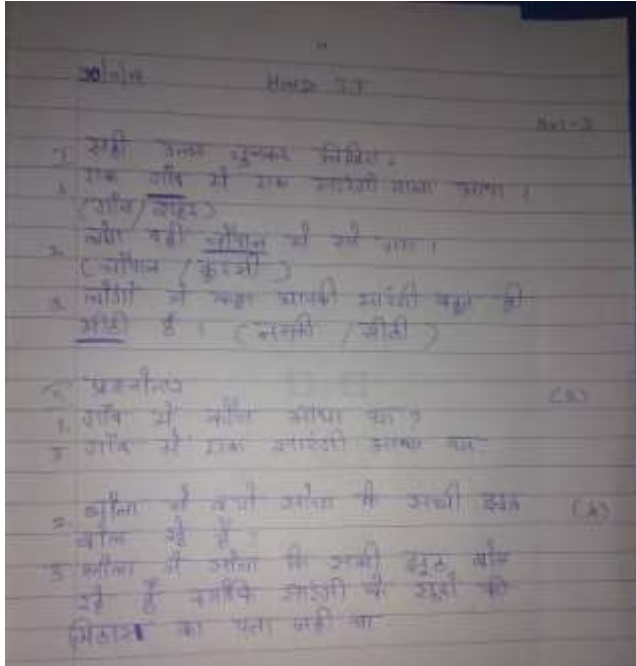 सही उत्तर चुनकर लिखिए।
एक गाँव में एक सारंगी वाला आया।
(गाँव / शहर)
चौपाल में
(चौपाल / कुरसी)
लोगों ने कहा आपकी सारंगी बहुत ही
मीठी है। ( / मीठी)
प्रश्नोत्तर
1. गाँव में कौन आया था?
गाँव में एक सारंगी आया था
2. भोला ने क्यों सोचा कि सभी झूठ
बोल रहे हैं।
भोला ने सोचा कि सभी झूठ बोल
रहे हैं क्योंकि सारंगी के सुरों की
मिठास का पता नहीं था